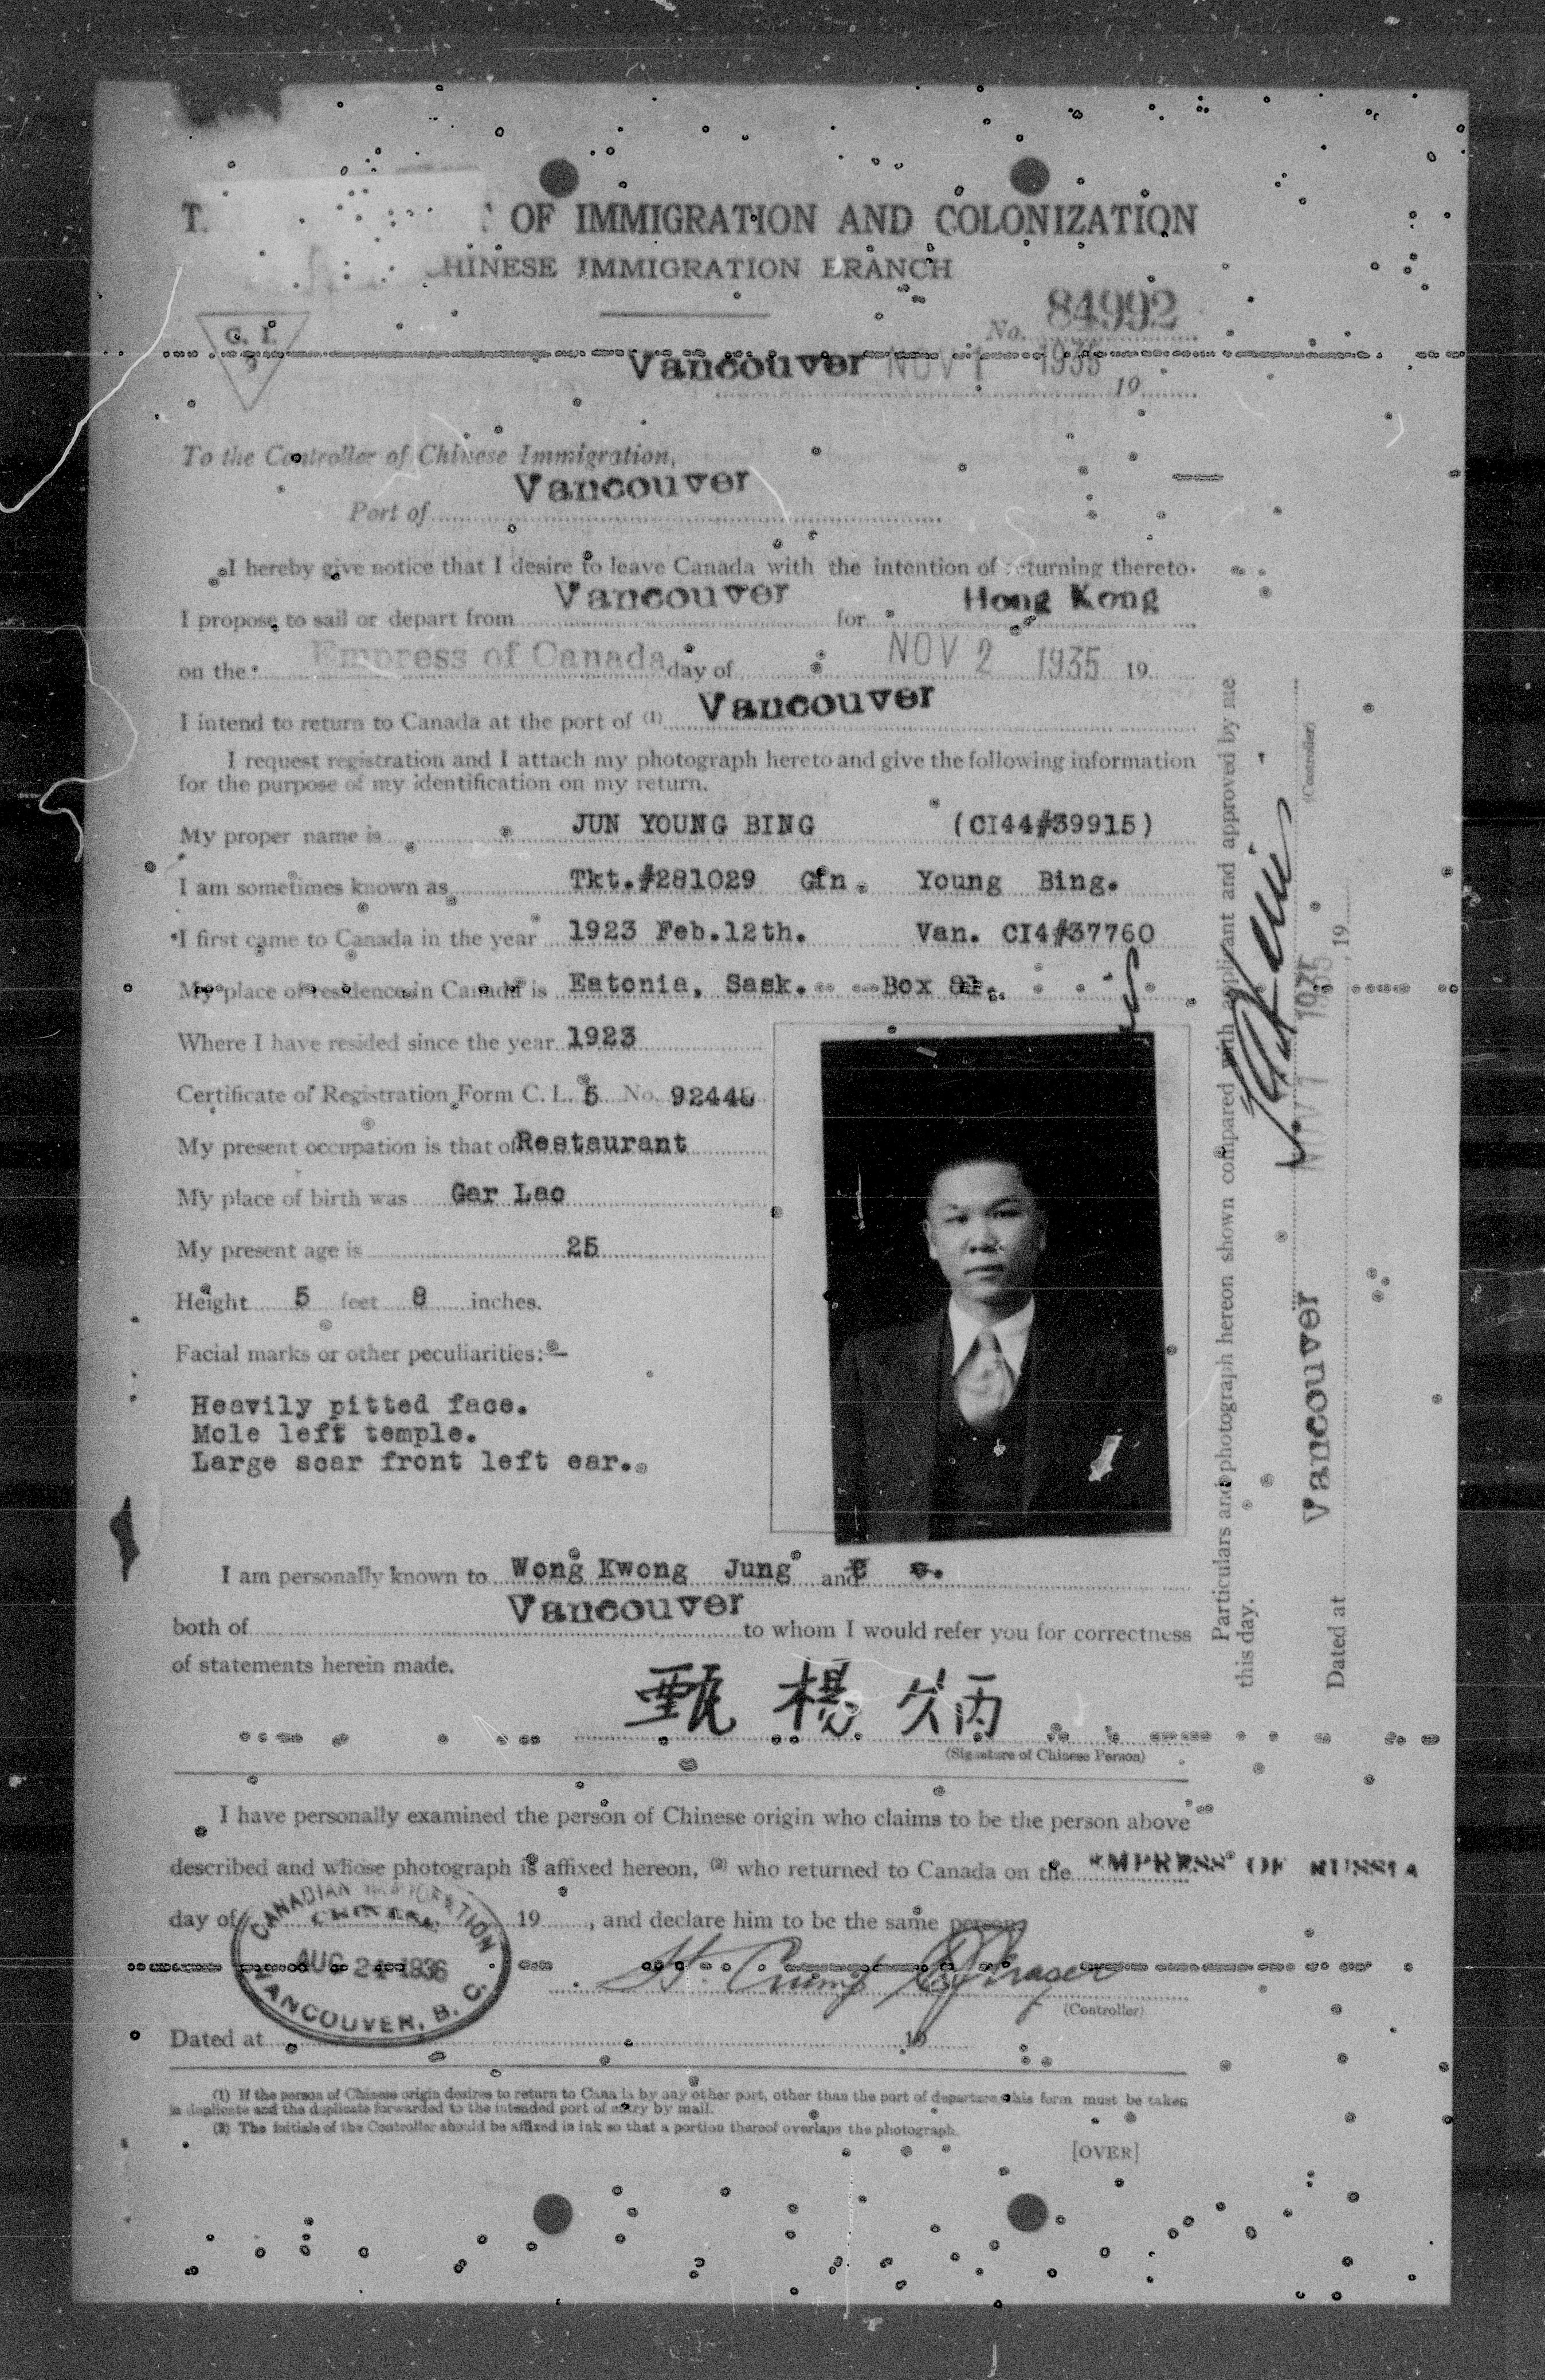 T. OF IMMIGRATION AND COLONIZATION
CHINESE IMMIGRATION BRANCH
No. 84992
C. I.
9
Vancouver NOV 1 1935 19
To the Controller of Chinese Immigration,
Port of Vancouver
I hereby give notice that I desire to leave Canada with the intention of returning thereto.
I propose to sail or depart from Vancouver for Hong Kong
on the Empress of Canada day of NOV 2 1935 19
I intend to return to Canada at the port of (1) Vancouver
I request registration and I attach my photograph hereto and give the following information
for the purpose of my identification on my return.
My proper name is JUN YOUNG BING (CI44#39915)
I am sometimes known as Tkt.#281029 Gin Young Bing.
I first came to Canada in the year 1923 Feb.12th. Van. CI4#37760
My place of residence in Canada is Eatonia, Sask. Box
Where I have resided since the year 1923
Certificate of Registration Form C. I. 5 No.
My present occupation is that of Restaurant
My place of birth was Gar Lao
My present age is 25
Height 5 feet 8 inches.
Facial marks or other peculiarities:—
Heavily pitted face.
Mole left temple.
Large scar front left ear.
I am personally known to Wong Kwong Jung and
both of Vancouver to whom I would refer you for correctness
of statements herein made.
甄 楊 炳
(Signature of Chinese Person)
I have personally examined the person of Chinese origin who claims to be the person above
described and whose photograph is affixed hereon, (2) who returned to Canada on the EMPRESS OF RUSSIA
day of 19 , and declare him to be the same person.
CANADIAN IMMIGRATION
CHINESE
AUG 24 1936
VANCOUVER, B. C.
(Controller)
Dated at 19
(1) If the person of Chinese origin desires to return to Canada by any other port, other than the port of departure this form must be taken
in duplicate and the duplicate forwarded to the intended port of entry by mail.
(2) The initials of the Controller should be affixed in ink so that a portion thereof overlaps the photograph.
[OVER]
Particulars and photograph hereon shown compared with applicant and approved by me
this day.
(Controller)
Dated at Vancouver NOV 1 1935 , 19